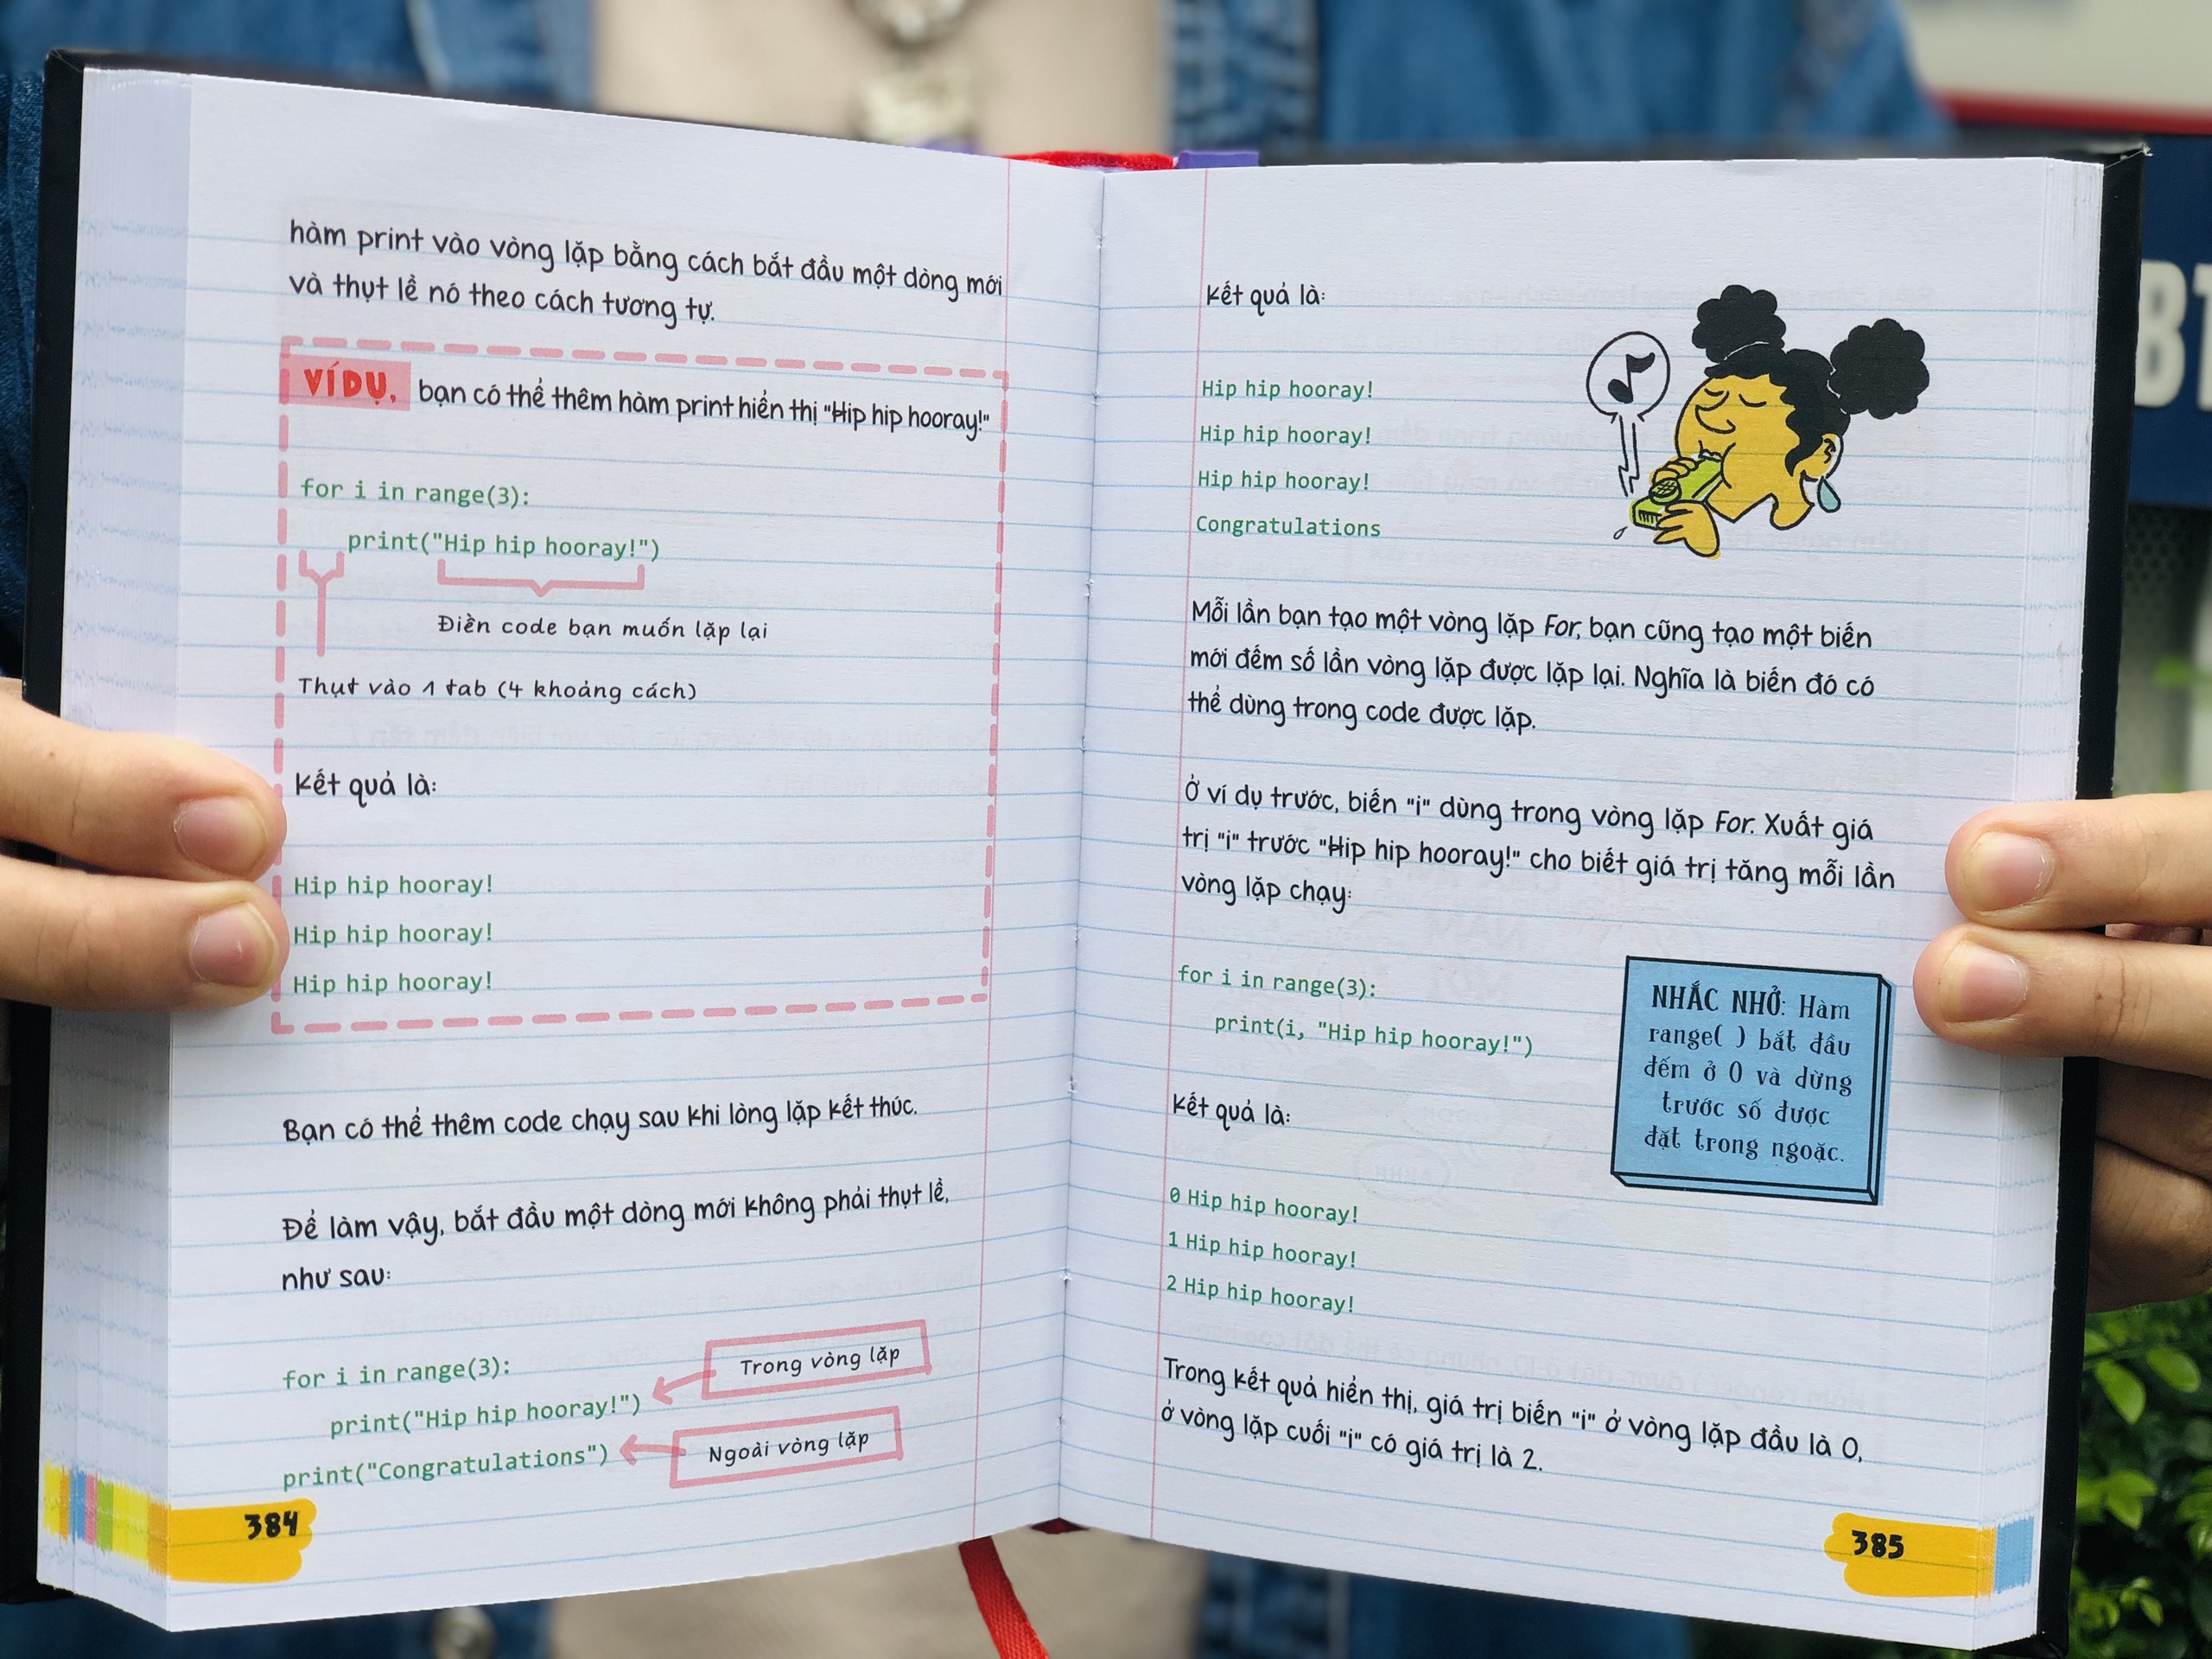 hàm print vào vòng lặp bằng cách bắt đầu một dòng mới
và thụt lề nó theo cách tương tự.
VÍ DỤ, bạn có thể thêm hàm print hiển thị "Hip hip hooray!"
for i in range(3):
    print("Hip hip hooray!")
Điền code bạn muốn lặp lại
Thụt vào 1 tab (4 khoảng cách)
Kết quả là:
Hip hip hooray!
Hip hip hooray!
Hip hip hooray!
Bạn có thể thêm code chạy sau khi lòng lặp kết thúc.
Để làm vậy, bắt đầu một dòng mới không phải thụt lề,
như sau:
for i in range(3):
    print("Hip hip hooray!")
Trong vòng lặp
print("Congratulations")
Ngoài vòng lặp
384
Kết quả là:
Hip hip hooray!
Hip hip hooray!
Hip hip hooray!
Congratulations
Mỗi lần bạn tạo một vòng lặp For, bạn cũng tạo một biến
mới đếm số lần vòng lặp được lặp lại. Nghĩa là biến đó có
thể dùng trong code được lặp.
Ở ví dụ trước, biến "i" dùng trong vòng lặp For. Xuất giá
trị "i" trước "Hip hip hooray!" cho biết giá trị tăng mỗi lần
vòng lặp chạy:
for i in range(3):
    print(i, "Hip hip hooray!")
NHẮC NHỞ: Hàm
range( ) bắt đầu
đếm ở 0 và dừng
trước số được
đặt trong ngoặc.
Kết quả là:
0 Hip hip hooray!
1 Hip hip hooray!
2 Hip hip hooray!
Trong kết quả hiển thị, giá trị biến "i" ở vòng lặp đầu là 0,
ở vòng lặp cuối "i" có giá trị là 2.
385